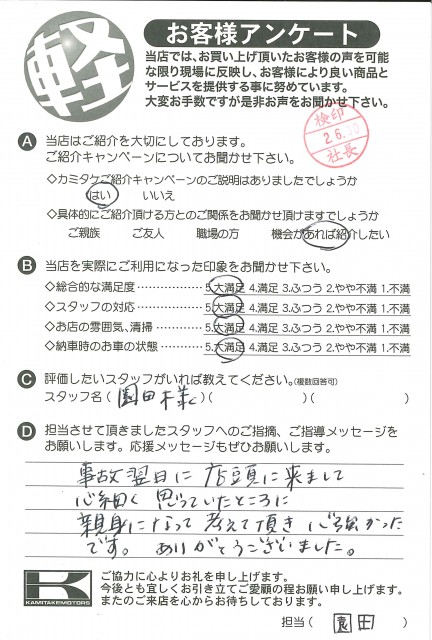 軽
お客様アンケート
当店では、お買い上げ頂いたお客様の声を可能
な限り現場に反映し、お客様により良い商品と
サービスを提供する事に努めています。
大変お手数ですが是非お声をお聞かせ下さい。
検印
社長
A 当店はご紹介を大切にしております。
ご紹介キャンペーンについてお聞かせ下さい。
◇カミタケご紹介キャンペーンのご説明はありましたでしょうか
はい いいえ
◇具体的にご紹介頂ける方とのご関係をお聞かせ頂けますでしょうか
ご親族 ご友人 職場の方 機会があれば紹介したい
B 当店を実際にご利用になった印象をお聞かせ下さい。
◇総合的な満足度……………5.大満足 4.満足 3.ふつう 2.やや不満 1.不満
◇スタッフの対応……………5.大満足 4.満足 3.ふつう 2.やや不満 1.不満
◇お店の雰囲気、清掃………5.大満足 4.満足 3.ふつう 2.やや不満 1.不満
◇納車時のお車の状態………5.大満足 4.満足 3.ふつう 2.やや不満 1.不満
C 評価したいスタッフがいれば教えてください。(複数回答可)
スタッフ名(園田様)( )( )
D 担当させて頂きましたスタッフへのご指摘、ご指導メッセージを
お願いします。応援メッセージもぜひお願いします。
事故翌日に店頭に来まして
心細く思っていたところに
親身になって考えて頂き心強かった
です。ありがとうございました。
KAMITAKE MOTORS
ご協力に心よりお礼を申し上げます。
今後とも宜しくお引き立てご愛顧の程お願い申し上げます。
またのご来店を心からお待ちしております。
担当(園田)